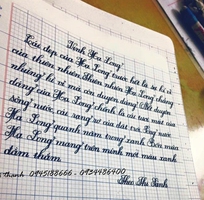 Vịnh Hạ Long
Cái đẹp của Hạ Long trước hết là sự kì vĩ
của thiên nhiên. Thiên nhiên Hạ Long chẳng
những kì vĩ mà còn duyên dáng. Nét duyên
dáng của Hạ Long chính là cái tươi mát của
sóng nước, cái rạng rỡ của đất trời. Sóng nước
Hạ Long quanh năm trong xanh. Bốn mùa
Hạ Long mang trên mình một màu xanh
đằm thắm.
thanh 0945188666 - 0934486400
Theo Thi Sảnh